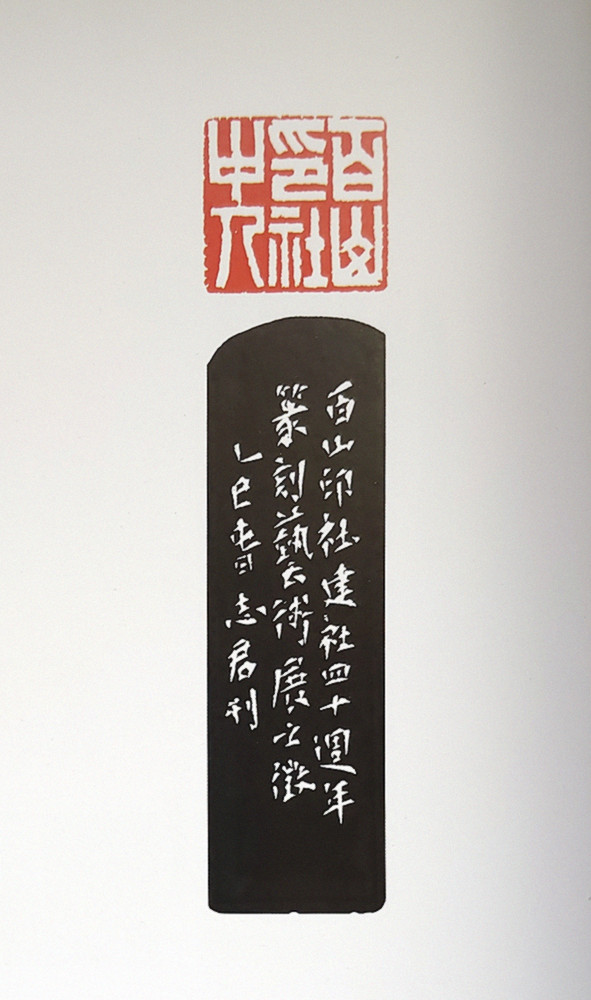 百山
印社
中人
百山印社建社四十週年
篆刻藝術展之徵
乙巳旾志君刊